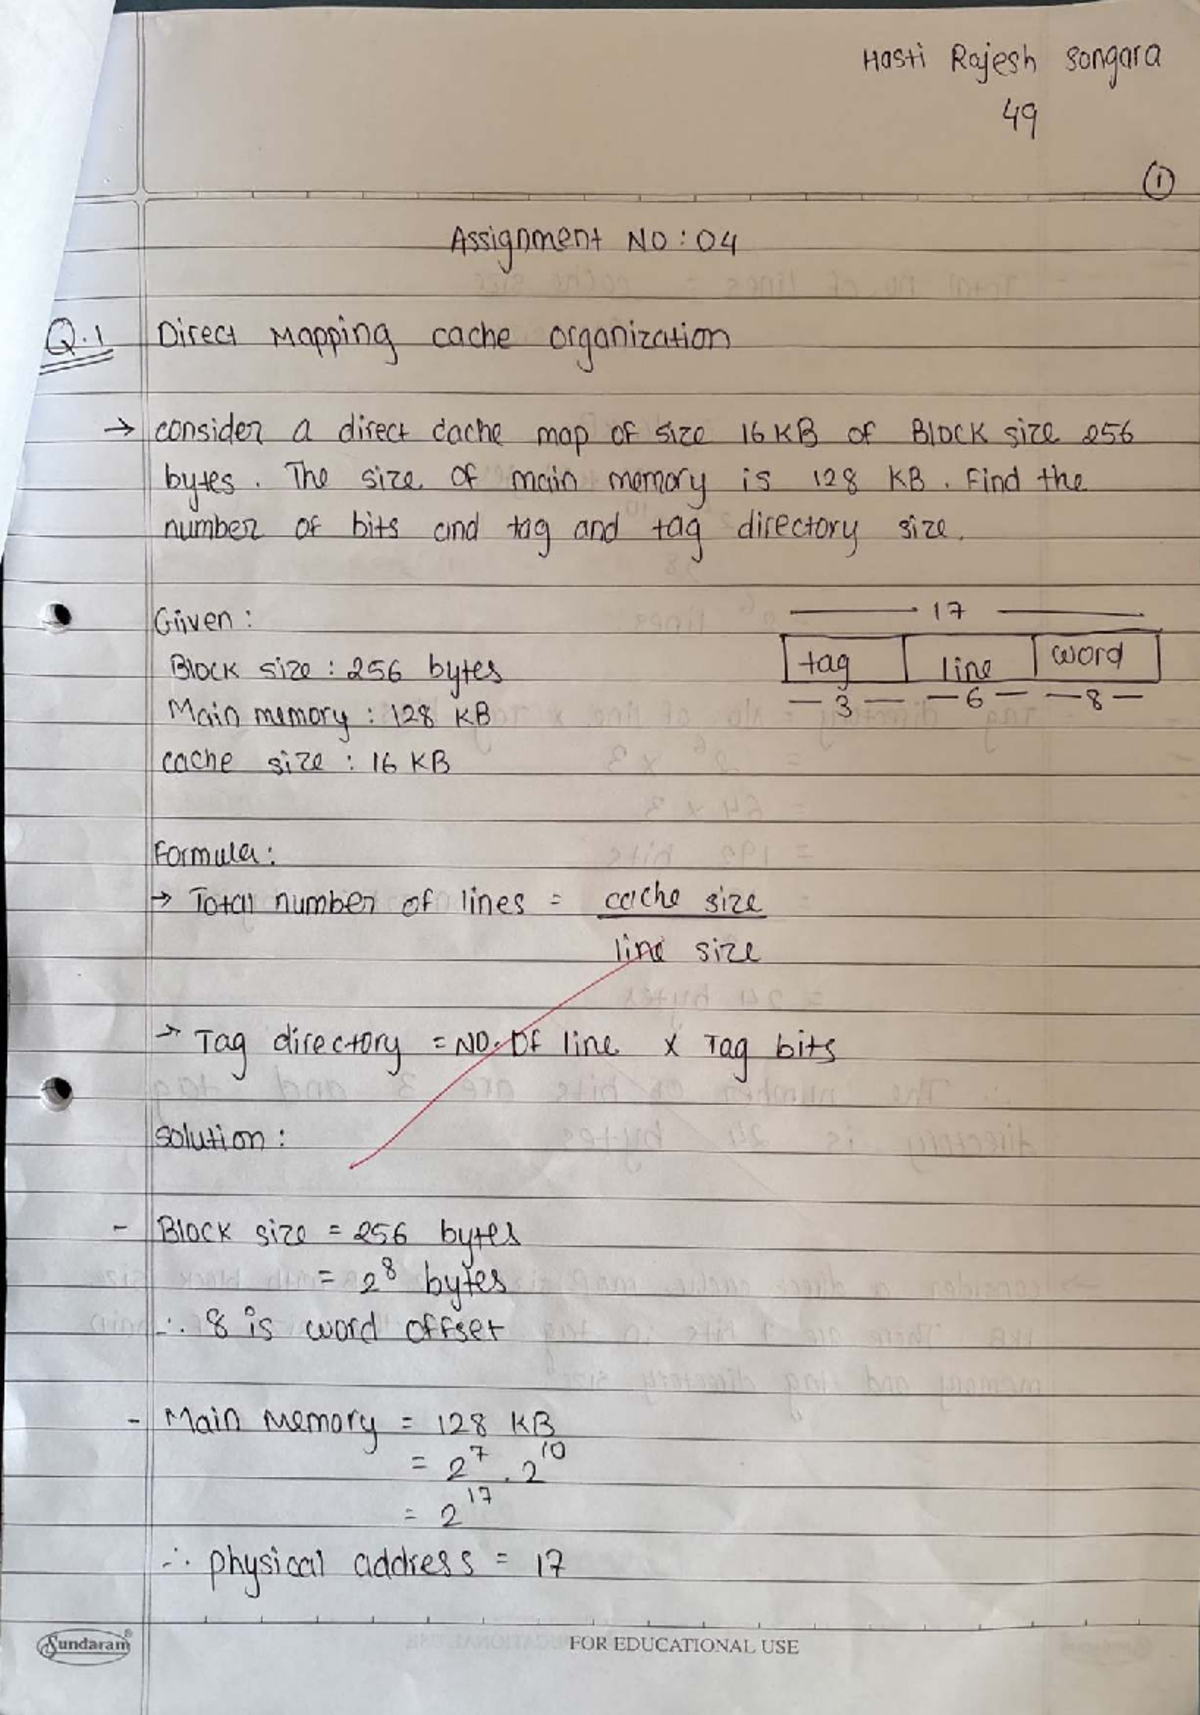 Hasti Rajesh Songara
49
1
Assignment NO : 04
Q.1 Direct Mapping cache organization
→ consider a direct cache map of size 16 KB of Block size 256
bytes. The size of main memory is 128 KB. Find the
number of bits and tag and tag directory size.
Given :
17
Block size : 256 bytes
tag line word
Main memory : 128 KB
3 6 8
cache size : 16 KB
Formula :
→ Total number of lines = cache size
line size
→ Tag directory = NO. Of line x Tag bits
Solution :
- Block size = 256 bytes
= 2⁸ bytes
∴ 8 is word offset
- Main memory = 128 KB
= 2⁷ . 2¹⁰
= 2¹⁷
∴ physical address = 17
Sundaram® FOR EDUCATIONAL USE